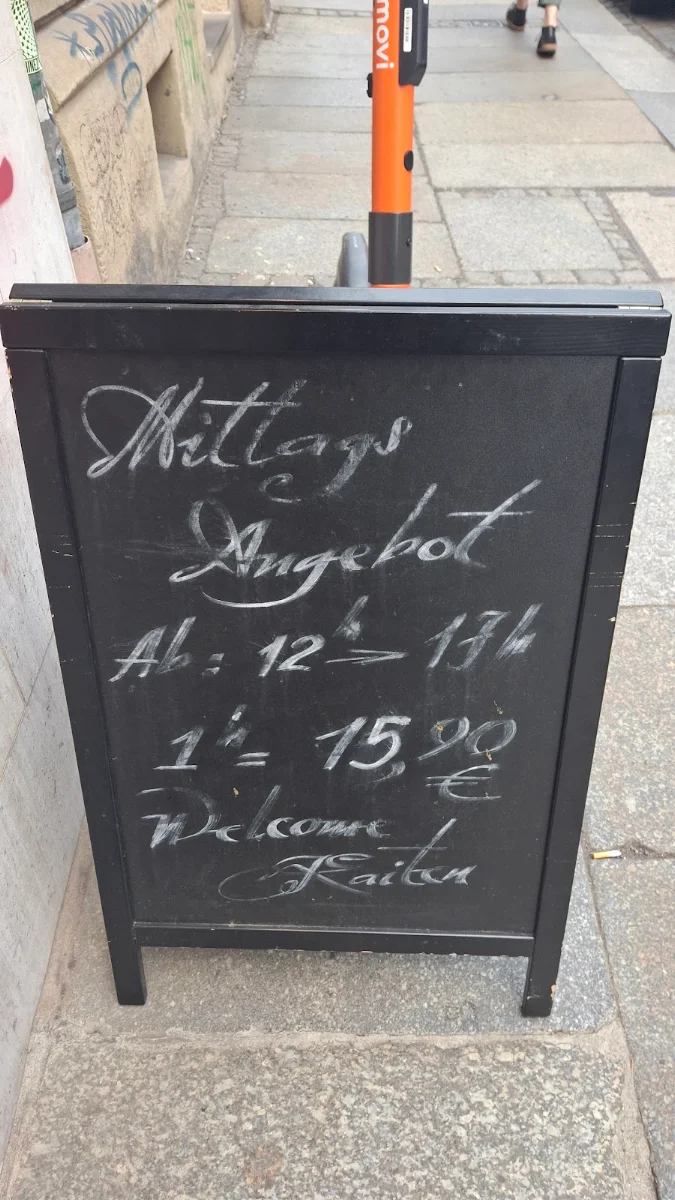 movi
Mittags
Angebot
Ab: 12h -> 17h
1h = 15,90
€
Welcome
Kaiten